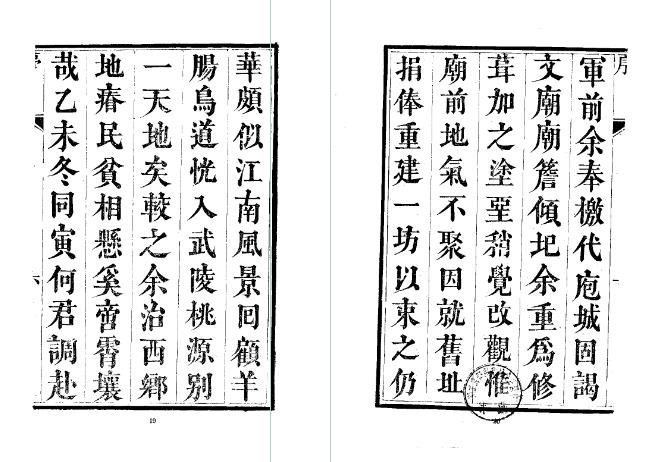 華頗似江南風景回顧羊
腸鳥道恍入武陵桃源別
一天地矣較之余治西鄉
地瘠民貧相懸奚啻霄壤
哉乙未冬同寅何君調赴
19
軍前余奉檄代庖城固謁
文廟廟簷傾圮余重爲修
葺加之塗堊稍覺改觀惟
廟前地氣不聚因就舊址
捐俸重建一坊以束之仍
20